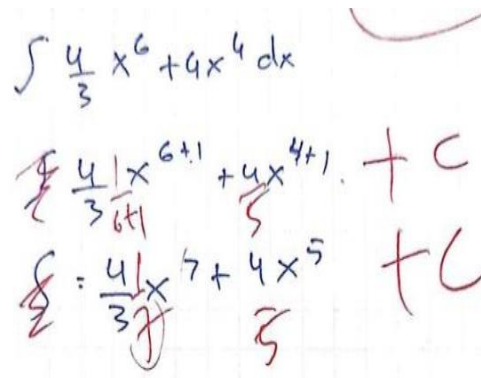 ∫ 4/3 x^6 + 4x^4 dx
4/3 1/(6+1) x^(6+1) + 4x^(4+1)/5 . + C
= 4/3 1/7 x^7 + 4x^5/5 + C